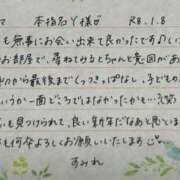 本指名Y様♡ R8.1.8
も無事にお会い出来て良かったです♪いつ
お部屋で、尋ねてみるとちゃんと意図があり
から最後までくっつきっぱなし、子どもの
いうか一面どころでまだなかったかも…笑
も見つけられて、良い新年だなあと思いま
も何卒よろしくお願いいたします♡
すみれ